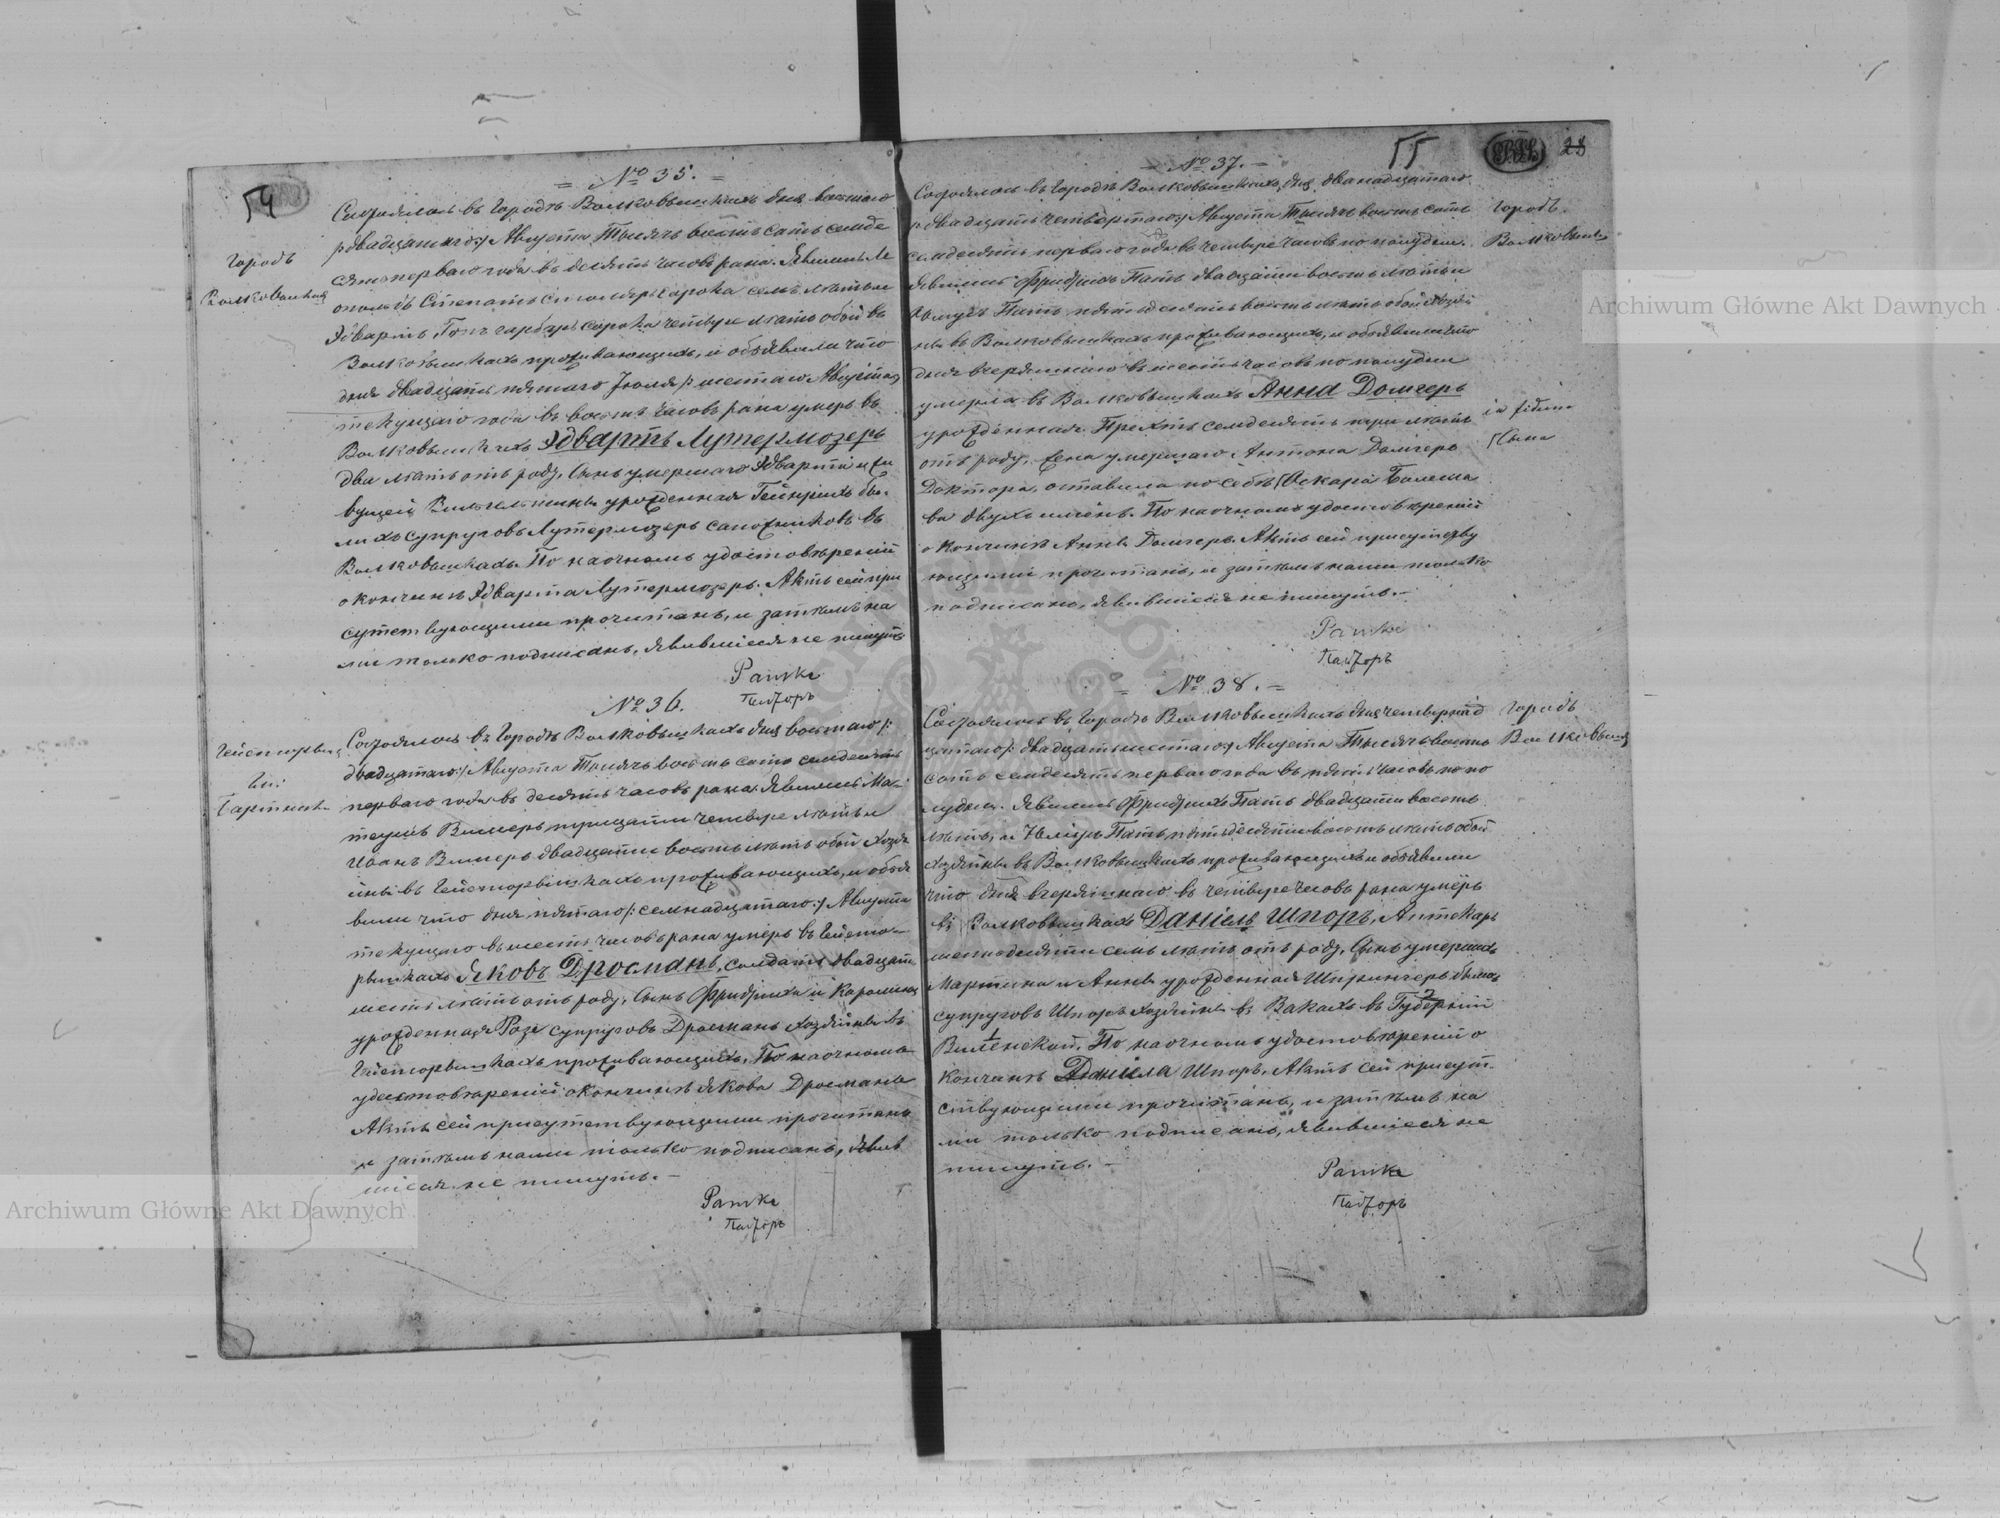 54
№ 35.
Городъ
Волковышки
Состоялось въ Городѣ Волковышкахъ дня восьмаго
/:двадцатаго:/ Августа Тысяча восемь сотъ семде
сятъ перваго года въ десять часовъ рана. Явились Ле
опольдъ Степатъ столяръ сорока семь лѣтъ и
Эдвартъ Гопъ гарбаръ сорока четыре лѣтъ обой въ
Волковышкахъ проживающихъ, и объявили что
дня двадцать пятаго Іюля /:шестаго Августа:/
текущаго года въ восемь часовъ рана умеръ въ
Волковышкахъ Эдвартъ Лутермозеръ
два лѣтъ отъ роду, сынъ умершаго Эдварта и жи
вущей Вильгельмины урожденная Гейнрихъ бы-
лихъ супруговъ Лутермозеръ сапожниковъ въ
Волковышкахъ. По наочномъ удостовѣреній
о кончинѣ Эдварта Лутермозеръ. Актъ сей при
сутствующими прочитанъ, и затѣмъ на
ми только подписанъ, явившіеся не пишутъ
Pawke
Пасторъ
№ 36.
Гейсторвиш
Ги:
Бартники
Состоялось въ Городѣ Волковышкахъ дня восьмаго /:
двадцатаго:/ Августа Тысяча восемь сотъ семдесятъ
перваго года въ десять часовъ рана. Явились Ма-
теушъ Вилмеръ тридцати четыре лѣтъ и
Иванъ Вилмеръ двадцати восемь лѣтъ обой хозя
ины въ Гейсторвишкахъ проживающихъ, и объя
вили что дня пятаго /:семнадцатаго:/ Августа
текущаго въ шесть часовъ рана умеръ въ Гейсто-
рвишкахъ Яковъ Дросманъ, солдатъ двадцать
шесть лѣтъ отъ роду, сынъ Фридриха и Каролины
урожденная Розе супруговъ Дросманъ хозяйны въ
Гейсторвишкахъ проживающихъ. По наочномъ
удостовѣреній о кончинѣ Якова Дросмана
Актъ сей присутствующими прочитанъ
и затѣмъ нами только подписанъ, явив
шіеся не пишутъ.-
Pawke
Пасторъ
55
28
№ 37.
Состоялось въ Городѣ Волковышкахъ дня двѣнадцатаго
/:двадцать четвертаго:/ Августа Тысяча восемь сотъ
семдесятъ перваго года въ четыре часовъ по полудни.
Явились Фридрихъ Патъ двадцати восемь лѣтъ и
Юлиусъ Патъ пятьдесятъ восемь лѣтъ обой хозяй
ны въ Волковышкахъ проживающихъ, и объявили что
дня вчеряшнаго въ шесть часовъ по полудни
умерла въ Волковышкахъ Анна Домгеръ
урожденная Прехтъ семдесятъ три лѣтъ
отъ роду, жена умершаго Антона Домгеръ
Доктора, оставила по себѣ Оскара Болесла
ва двухъ имёнъ. По наочномъ удостовѣреній
о кончинѣ Анны Домгеръ. Актъ сей присутству
ющими прочитанъ, и затѣмъ нами только
подписанъ, явившіеся не пишутъ.-
Pawke
Пасторъ
Городъ
Волковышки
in fidem
Сына
№ 38.
Состоялось въ Городѣ Волковышкахъ дня четырнад
цатаго /:двадцать шестаго:/ Августа Тысяча восемь
сотъ семдесятъ перваго года въ пять часовъ по по
лудни. Явились Фридрихъ Патъ двадцати восемь
лѣтъ, и Юлиусъ Патъ пятьдесяти восемь лѣтъ обой
хозяйны въ Волковышкахъ проживающихъ и объявили
что дня вчеряшнаго въ четыре часовъ рана умеръ
въ Волковышкахъ Даніель Шпоръ, Аптекаръ
шестьдесяти семь лѣтъ отъ роду, сынъ умершихъ
Мартина и Анны урожденная Шпрингеръ былыхъ
супруговъ Шпоръ хозяйны въ Вакахъ въ Губерній
Виленской. По наочномъ удостовѣреній о
кончинѣ Даніела Шпоръ, Актъ сей присут-
ствующими прочитанъ, и затѣмъ на
ми только подписанъ, явившіеся не
пишутъ.-
Pawke
Пасторъ
Городъ
Волковышки
Archiwum Główne Akt Dawnych
Archiwum Główne Akt Dawnych